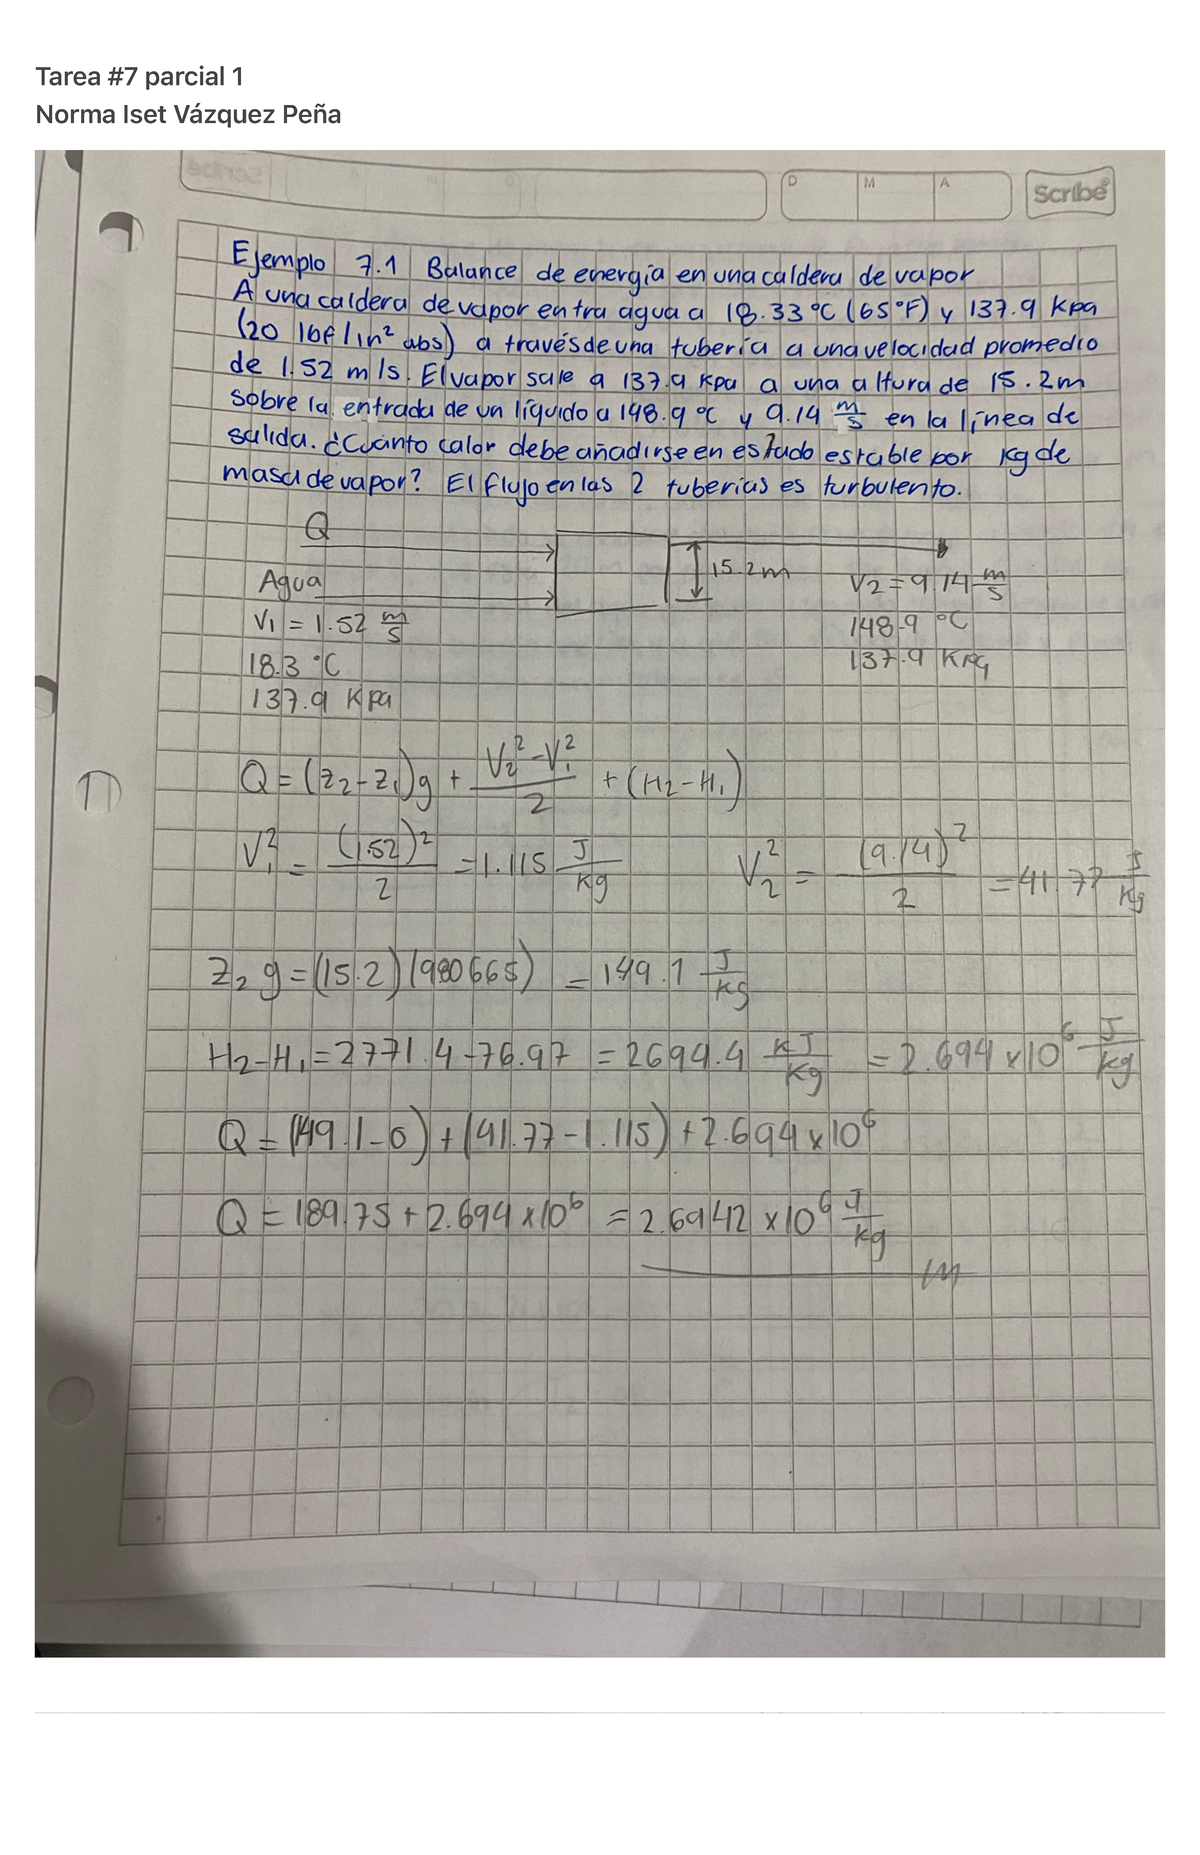 Tarea #7 parcial 1
Norma Iset Vázquez Peña
D M A Scribe
Ejemplo 7.1 Balance de energía en una caldera de vapor
A una caldera de vapor entra agua a 18.33 °C (65 °F) y 137.9 Kpa
(20 lbf/in² abs) a través de una tubería a una velocidad promedio
de 1.52 m/s. El vapor sale a 137.9 Kpa a una altura de 15.2m
sobre la entrada de un líquido a 148.9 °C y 9.14 m/s en la línea de
salida. ¿Cuánto calor debe añadirse en estado estable por kg de
masa de vapor? El flujo en las 2 tuberías es turbulento.
Q
15.2m
Agua V2 = 9.14 m/s
V1 = 1.52 m/s 148.9 °C
18.3 °C 137.9 Kpa
137.9 Kpa
Q = (Z2 - Z1)g + (V2² - V1²)/2 + (H2 - H1)
V1² = (1.52)²/2 = 1.115 J/kg V2² = (9.14)²/2 = 41.77 J/kg
Z2 g = (15.2)(980665) = 149.1 J/kg
H2 - H1 = 2771.4 - 76.97 = 2694.4 KJ/kg = 2.694 x 10⁶ J/kg
Q = (149.1 - 0) + (41.77 - 1.115) + 2.694 x 10⁶
Q = 189.75 + 2.694 x 10⁶ = 2.6942 x 10⁶ J/kg